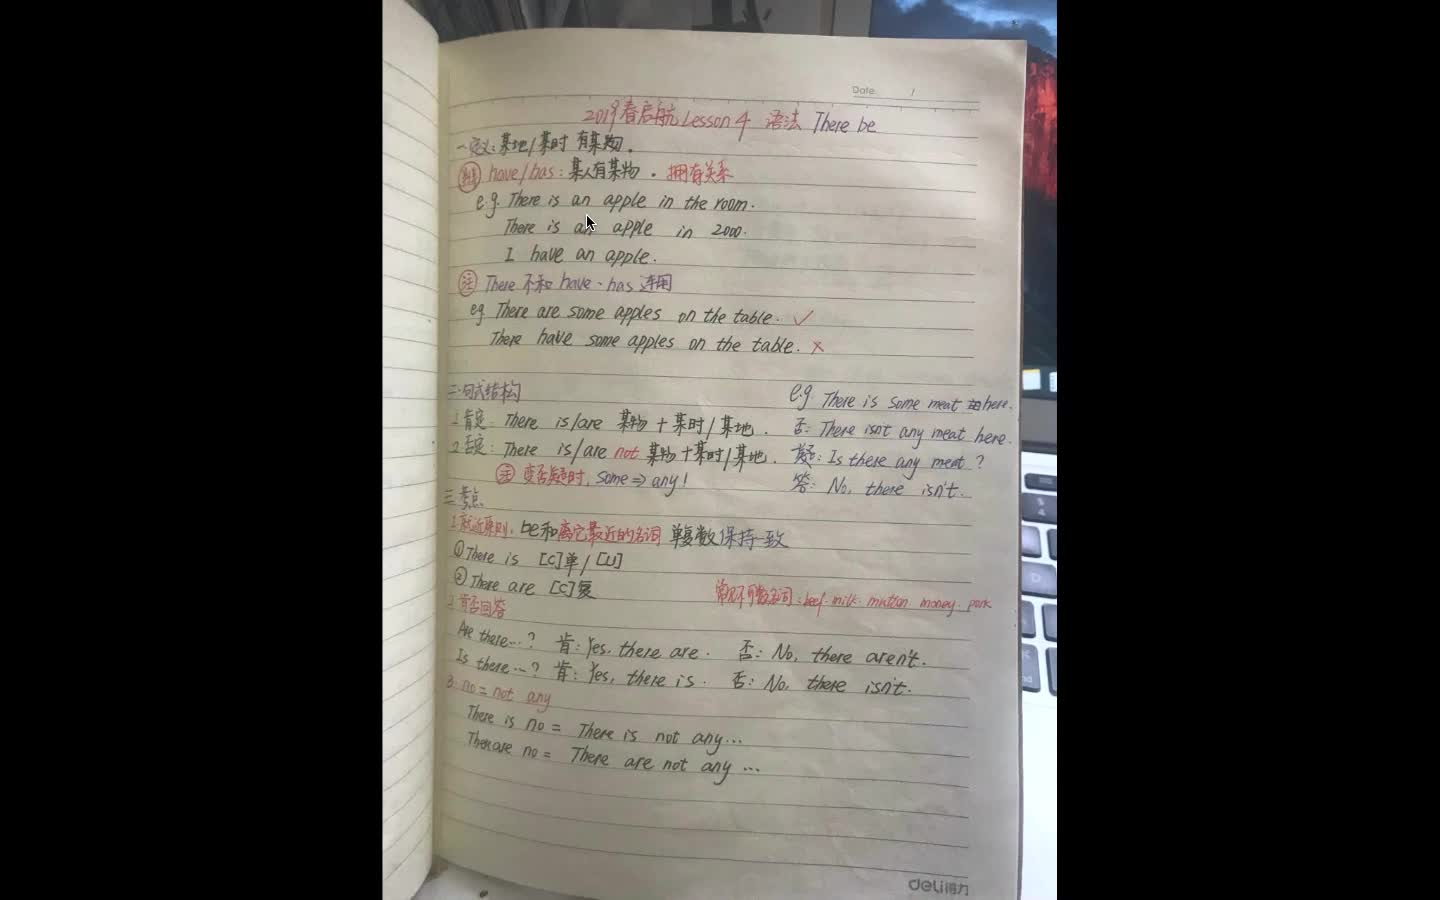 Date: /
2019春启航 Lesson 4 语法 There be
一.定义:某地/某时 有某物.
have/has:某人有某物. 拥有关系
e.g. There is an apple in the room.
There is an apple in 2000.
I have an apple.
注 There 不和 have、has 连用
eg There are some apples on the table. ✓
There have some apples on the table. ×
二.句式结构
1.肯定: There is/are 某物+某时/某地.
2.否定: There is/are not 某物+某时/某地.
注 变否疑时, some⇒any!
e.g There is some meat here.
否: There isn't any meat here.
疑: Is there any meat?
答: No, there isn't.
三.考点
1.就近原则. be和离它最近的名词 单复数保持一致
①There is [C]单/[U]
②There are [C]复
常见不可数名词:beef milk mutton money pork
2.肯否回答
Are there…? 肯: Yes, there are. 否: No, there aren't.
Is there…? 肯: Yes, there is. 否: No, there isn't.
3. no = not any
There is no = There is not any…
There are no = There are not any …
deli得力